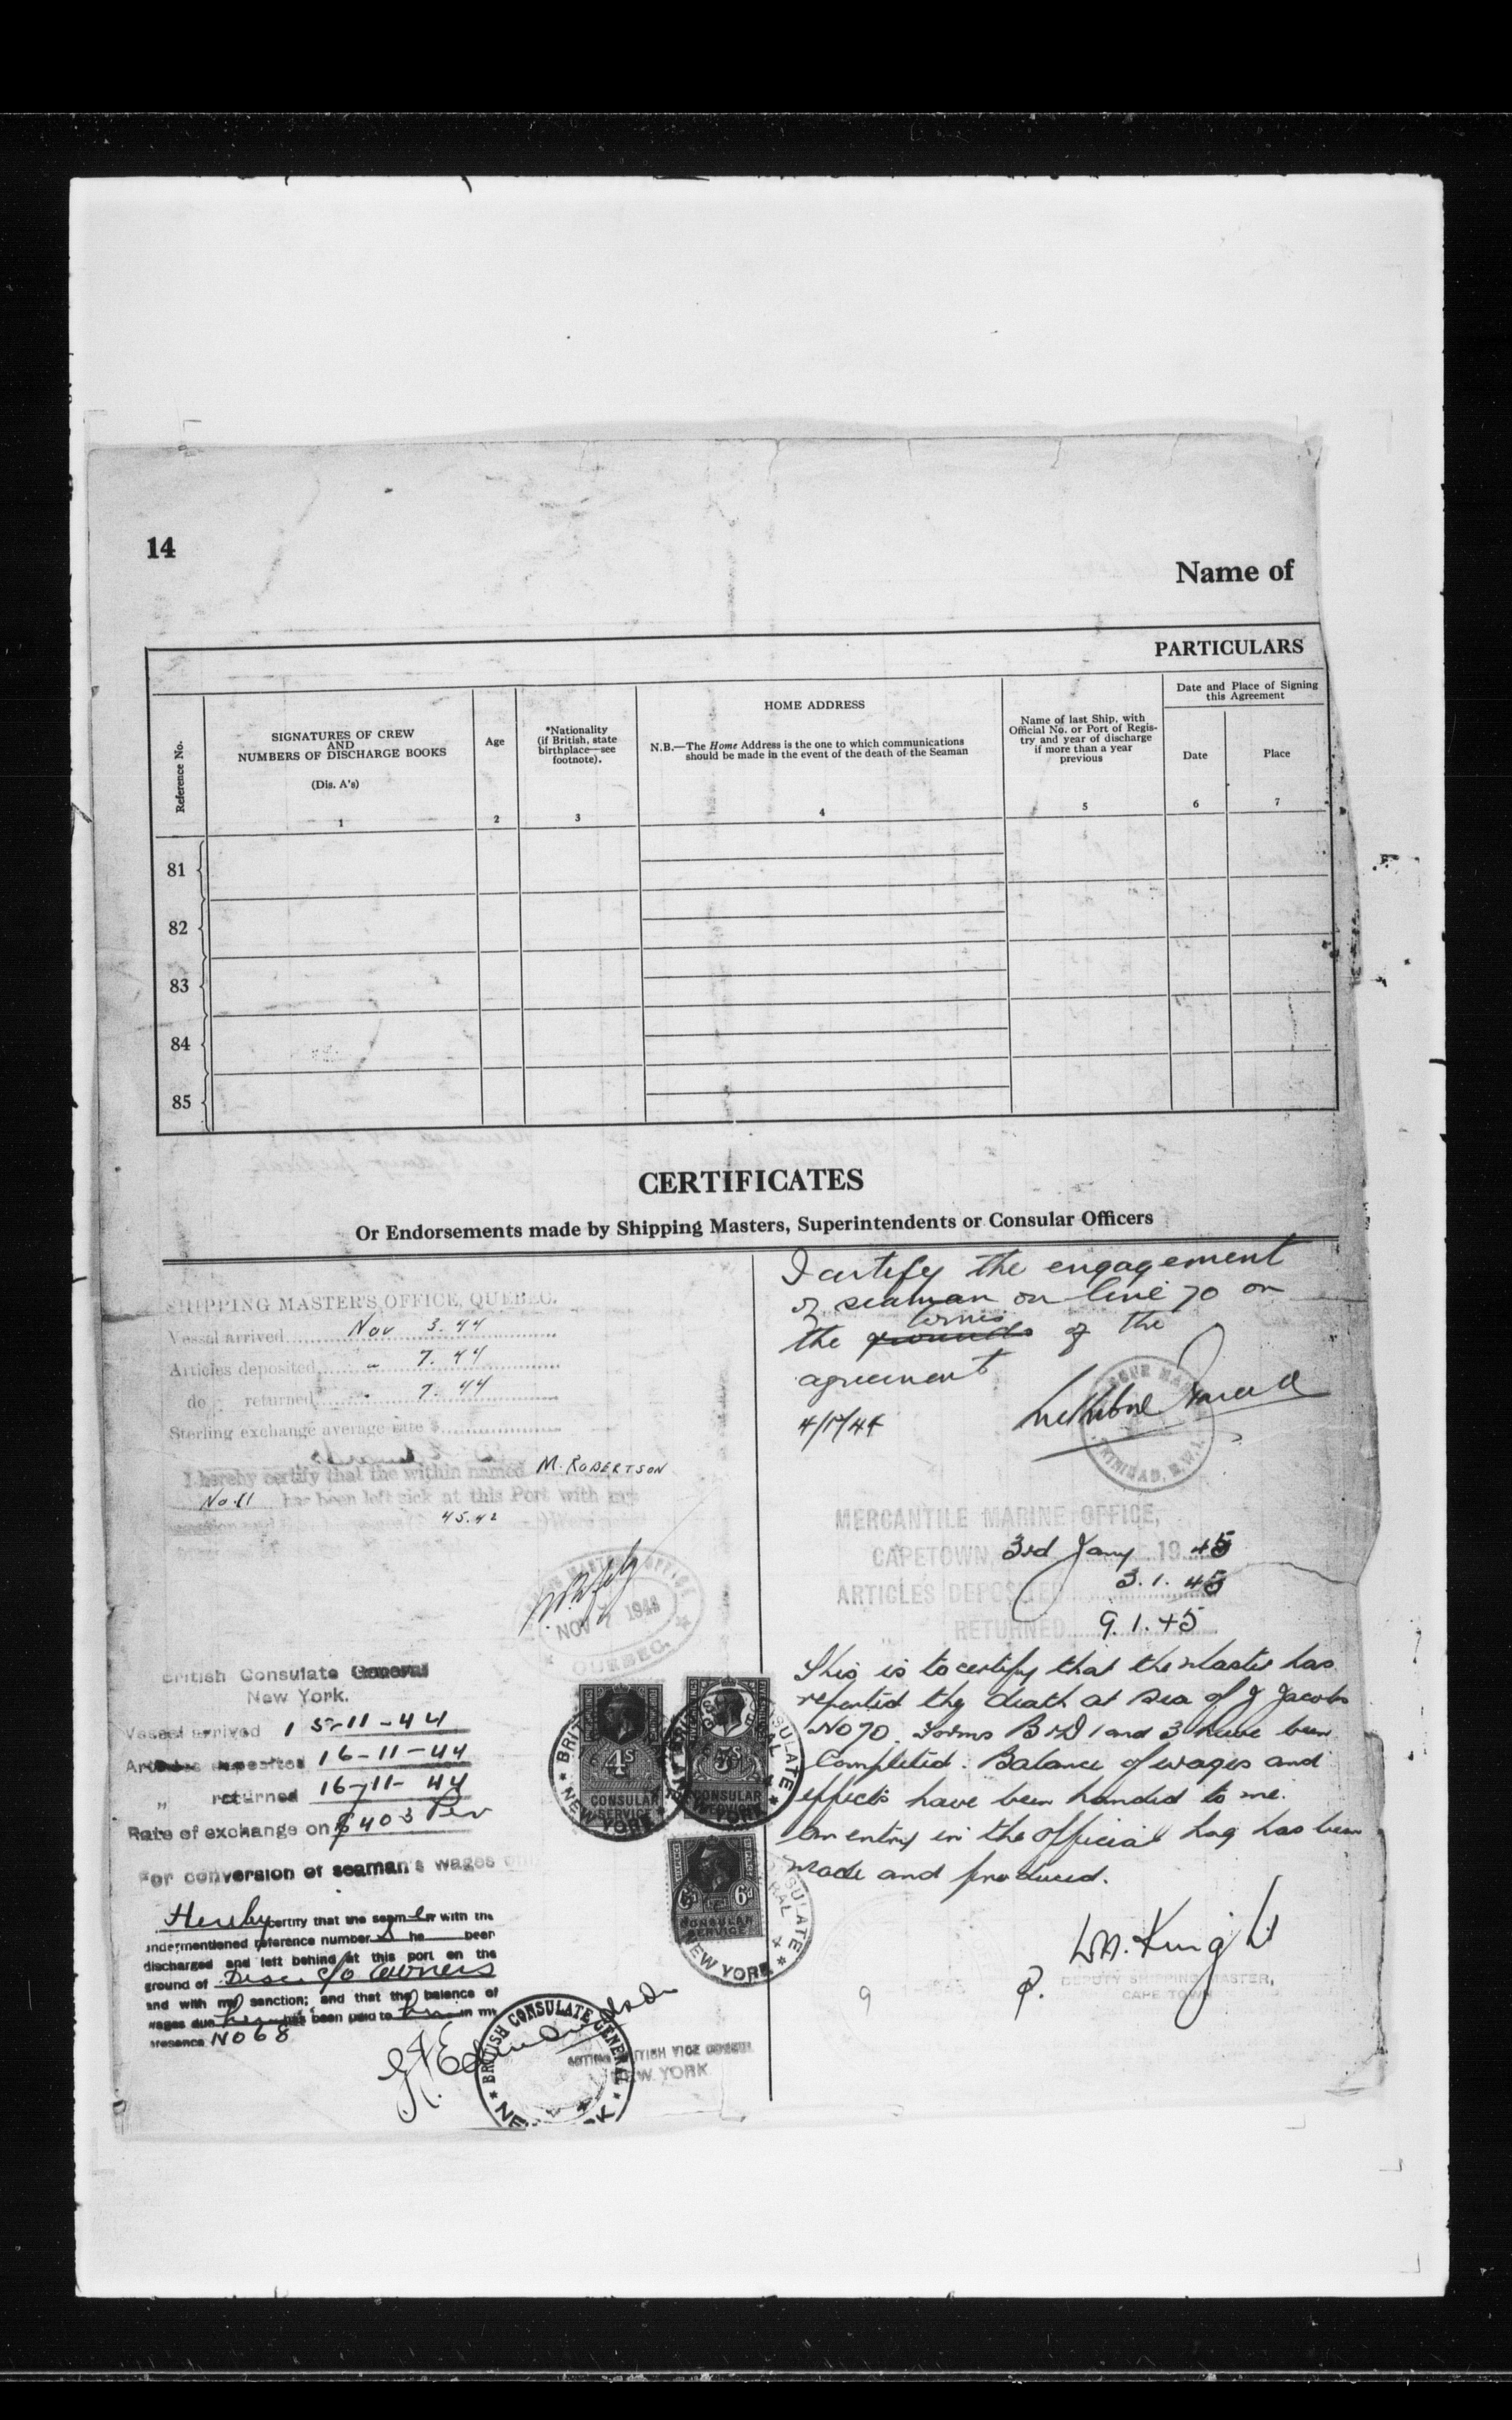 14
Name of
PARTICULARS
Reference No.
SIGNATURES OF CREW
AND
NUMBERS OF DISCHARGE BOOKS
(Dis. A's)
1
Age
2
*Nationality
(if British, state
birthplace—see
footnote).
3
HOME ADDRESS
N.B.—The Home Address is the one to which communications
should be made in the event of the death of the Seaman
4
Name of last Ship, with
Official No. or Port of Regis-
try and year of discharge
if more than a year
previous
5
Date and Place of Signing
this Agreement
Date
6
Place
7
81
82
83
84
85
CERTIFICATES
Or Endorsements made by Shipping Masters, Superintendents or Consular Officers
SHIPPING MASTER'S OFFICE, QUEBEC.
Vessel arrived Nov 3. 44
Articles deposited " 7. 44
do returned " 7. 44
Sterling exchange average rate $
I hereby certify that the within named M. ROBERTSON
No. 11 has been left sick at this Port with my
45.42
NOV 7 1944
QUEBEC.
British Consulate General
New York.
Vessel arrived 15-11-44
Articles deposited 16-11-44
" returned 16-11-44
Rate of exchange on $403 Per
For conversion of seaman's wages
Hereby certify that the seamen with the
undermentioned reference number he been
discharged and left behind at this port on the
ground of Disc c/o Owners
and with my sanction; and that the balance of
wages due him has been paid to him in my
presence No 68
BRITISH CONSULATE GENERAL
NEW YORK
ACTING BRITISH VICE CONSUL
NEW YORK
4S
CONSULAR
SERVICE
NEW YORK
CONSULAR
SERVICE
NEW YORK
6d
CONSULAR
SERVICE
NEW YORK
I certify the engagement
of seaman on line 70 on
terms
the grounds of the
agreement
TRINIDAD, B.W.I.
MERCANTILE MARINE OFFICE,
CAPETOWN, 3rd Jany 1945
ARTICLES DEPOSITED 3. 1. 45
RETURNED 9. 1. 45
This is to certify that the Master has
reported the death at sea of J Jacobs
No 70. Forms B & D 1 and 3 have been
Completed. Balance of wages and
effects have been handed to me.
An entry in the official log has been
made and produced.
W.A. Knight
P. DEPUTY SHIPPING MASTER,
CAPE TOWN